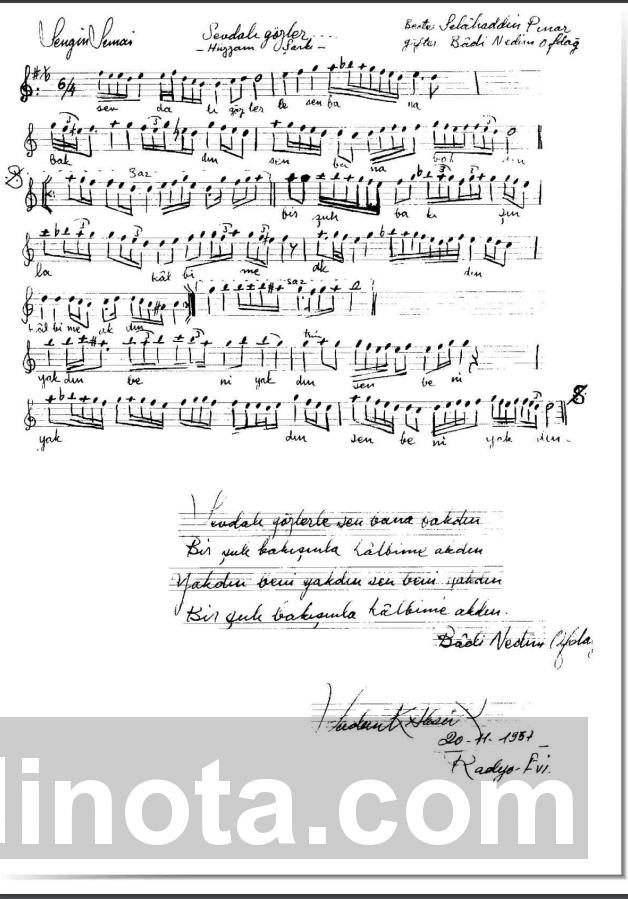 Sengin Semai
Sevdalı gözler...
- Hüzzam Şarkı -
Beste: Selâhaddin Pınar
güfte: Bâdi Nedim Ofdağ
6/4
sev da lı göz ler le sen ba na
bak dın sen ba na bak dın
Saz
bir şuh ba kı şın
la kâl bi me ak dın
kâl bi me ak dın saz
yak dın be ni yak dın sen be ni
yak dın sen be ni yak dın
Sevdalı gözlerle sen bana bakdın
Bir şuh bakışınla kâlbime akdın
Yakdın beni yakdın sen beni yakdın
Bir şuh bakışınla kâlbime akdın.
Bâdi Nedim
20-11-1957
Radyo-Evi.
dinota.com